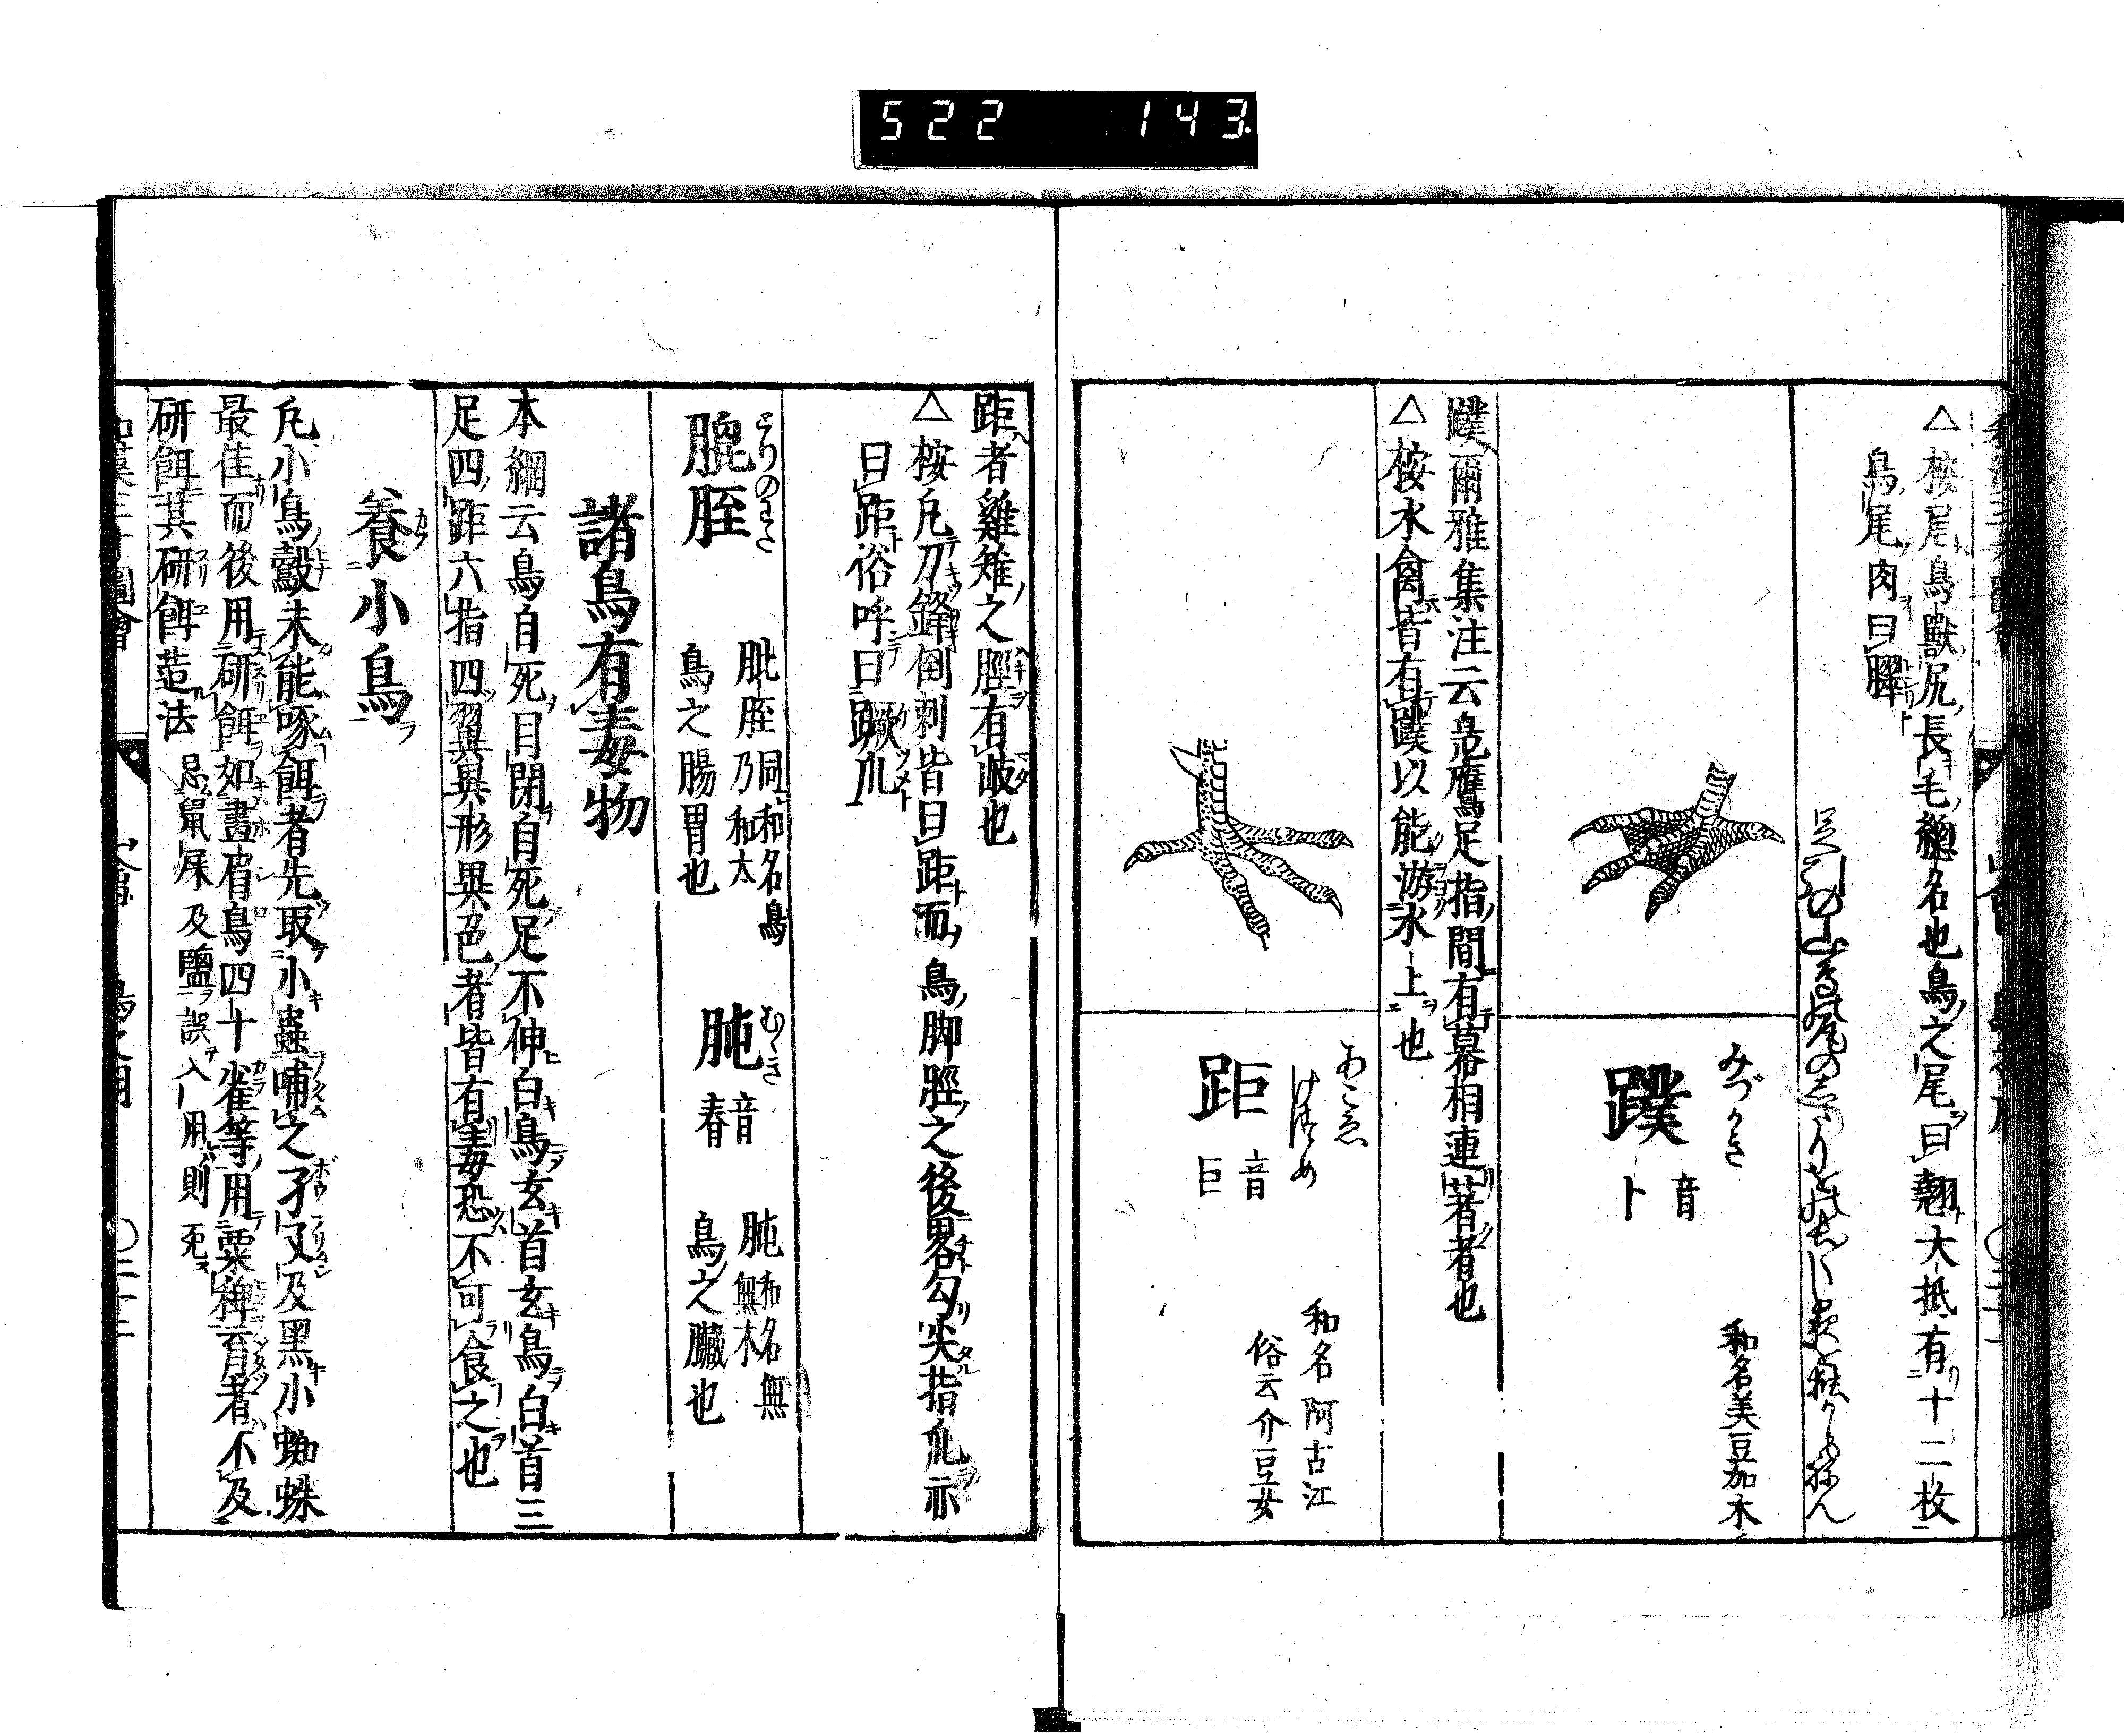 522 143
△桉尾鳥獸尻長毛總名也鳥之尾曰翹大抵有十二枚
鳥尾肉曰臎
足引の山鳥の尾のしたり尾のなか〱し夜を独りかもねん
みづかき
蹼
音卜
和名美豆加木
蹼爾雅集注云鳧鴈足指間有幕相連著者也
△桉水禽皆有蹼以能游水上也
あこゑ
けづめ
距
音巨
和名阿古江
俗云介豆女
距者雞雉之脛有岐也
△桉凡刀鋒倒刺皆曰距而鳥脚脛之後畧勾尖指爪亦
曰距俗呼曰蹶爪
とりのわた
膍胵
肶胵同和名鳥
乃和太
鳥之腸胃也
むくき
肫
音春
肫和名無
無木
鳥之臟也
諸鳥有毒物
本綱云鳥自死目閉自死足不伸白鳥玄首玄鳥白首三
足四距六指四翼異形異色者皆有毒恐不可食之也
養小鳥
凡小鳥鷇未能啄餌者先取小蟲哺之孑孓及黑小蜘蛛
最佳而後用研餌如畫眉鳥四十雀等用粟稗育者不及
研餌其研餌造法
忌鼠屎及鹽誤入用則死